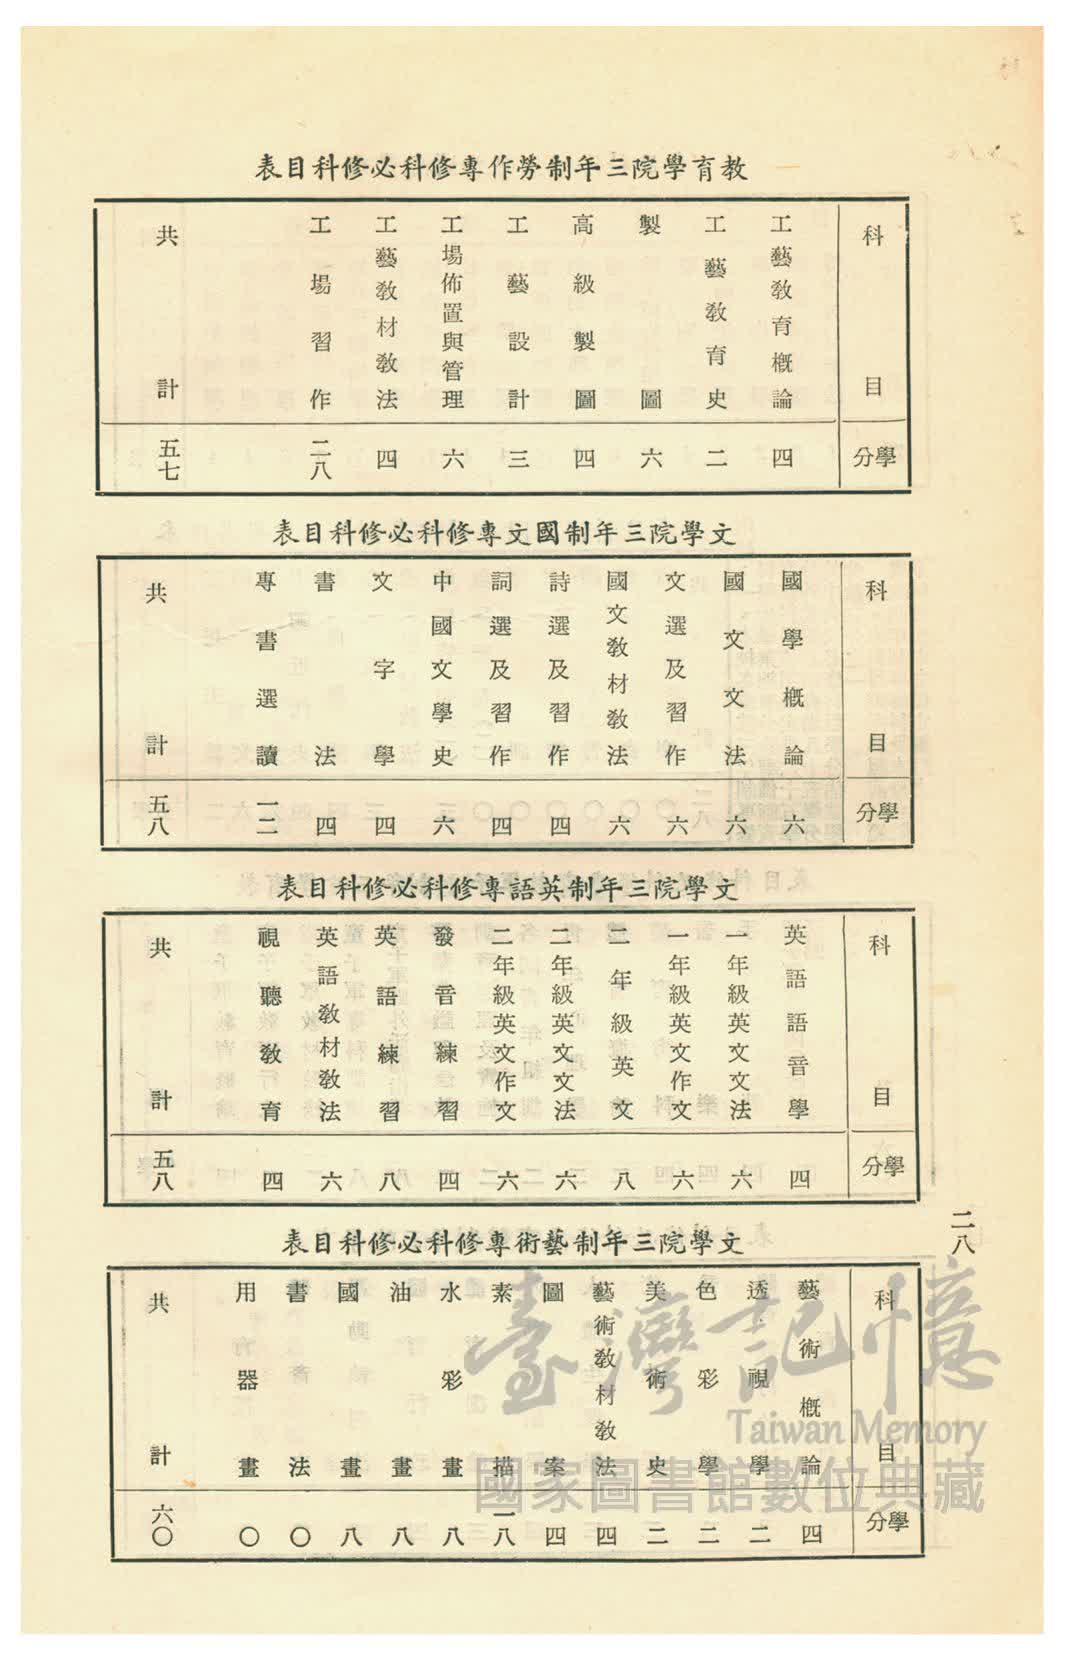 教育學院三年制勞作專修科必修科目表
科目 學分
工藝教育概論 四
工藝教育史 二
製圖 六
高級製圖 四
工藝設計 三
工場佈置與管理 六
工藝教材教法 四
工場習作 二八
共計 五七
文學院三年制國文專修科必修科目表
科目 學分
國學概論 六
國文文法 六
文選及習作 六
國文教材教法 六
詩選及習作 四
詞選及習作 四
中國文學史 六
文字學 四
書法 四
專書選讀 一二
共計 五八
文學院三年制英語專修科必修科目表
科目 學分
英語語音學 四
一年級英文文法 六
一年級英文作文 六
二年級英文 八
二年級英文文法 六
二年級英文作文 六
發音練習 四
英語練習 八
英語教材教法 六
視聽教育 四
共計 五八
文學院三年制藝術專修科必修科目表
科目 學分
藝術概論 四
透視學 二
色彩學 二
美術史 二
藝術教材教法 四
圖案 四
素描 一八
水彩畫 八
油畫 八
國畫 八
書法 〇
用器畫 〇
共計 六〇
二八
臺灣記憶
Taiwan Memory
國家圖書館數位典藏